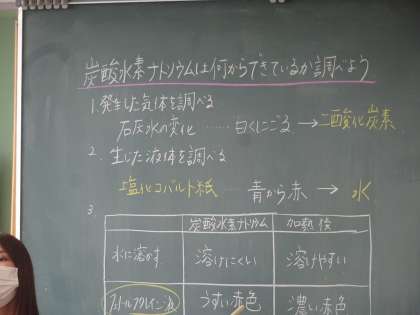 炭酸水素ナトリウムは何からできているか調べよう
1.発生した気体を調べる
石灰水の変化 ……白くにごる → 二酸化炭素
2.生じた液体を調べる
塩化コバルト紙 … 青から赤 → 水
3
炭酸水素ナトリウム 加熱後
水に溶かす 溶けにくい 溶けやすい
フェノールフタレイン液 うすい赤色 濃い赤色